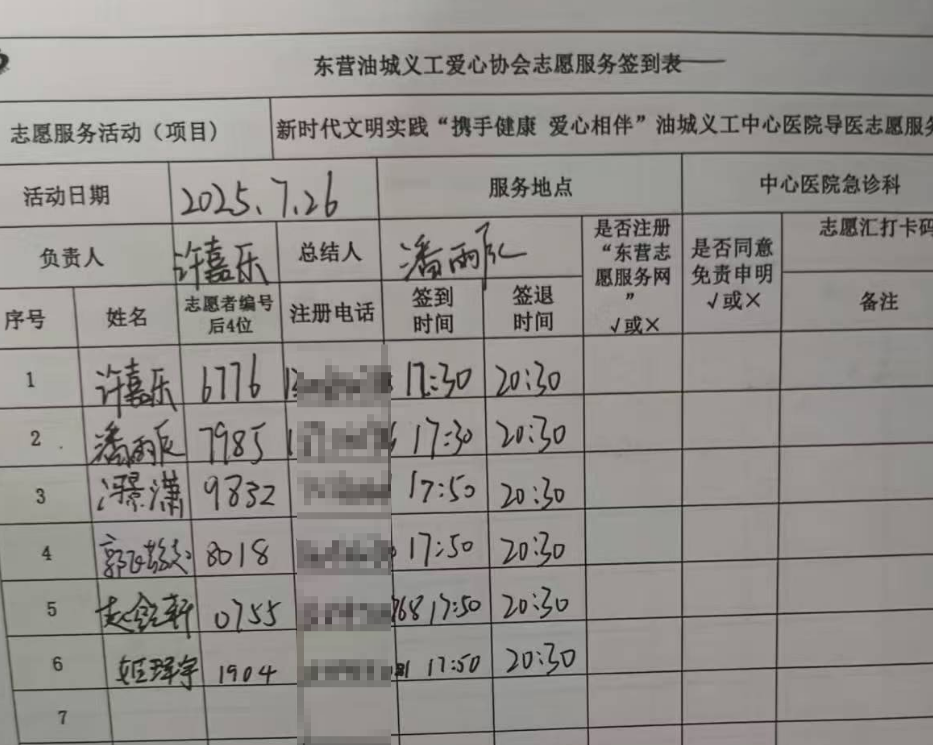 东营油城义工爱心协会志愿服务签到表
志愿服务活动（项目） 新时代文明实践“携手健康 爱心相伴”油城义工中心医院导医志愿服务
活动日期 2025.7.26 服务地点 中心医院急诊科
负责人 许嘉乐 总结人 潘雨辰 是否注册“东营志愿服务网” √或× 是否同意免责申明 √或× 志愿汇打卡码
序号 姓名 志愿者编号后4位 注册电话 签到时间 签退时间 备注
1 许嘉乐 6776 17:30 20:30
2 潘雨辰 7985 17:30 20:30
3 潇 9832 17:50 20:30
4 郭 8018 17:50 20:30
5 赵 轩 0755 17:50 20:30
6 姬 宇 1904 17:50 20:30
7